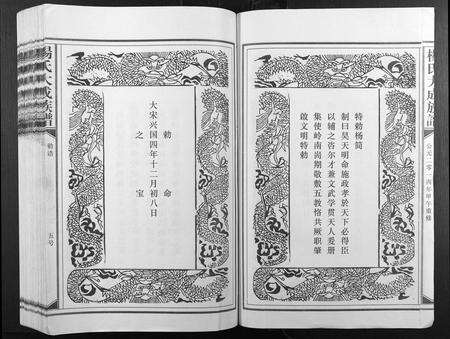 楊氏大成族譜
特勅杨筒
制曰昊天明命施政孝於天下必得臣
以辅之咨尔才兼文武学贯天人爰册
集使岭南尚期敬敷五教恪共厥职肇
啟文明特勅
勅 命
大宋兴国四年十二月初八日
之 宝
楊氏大成族譜
勅语
五号